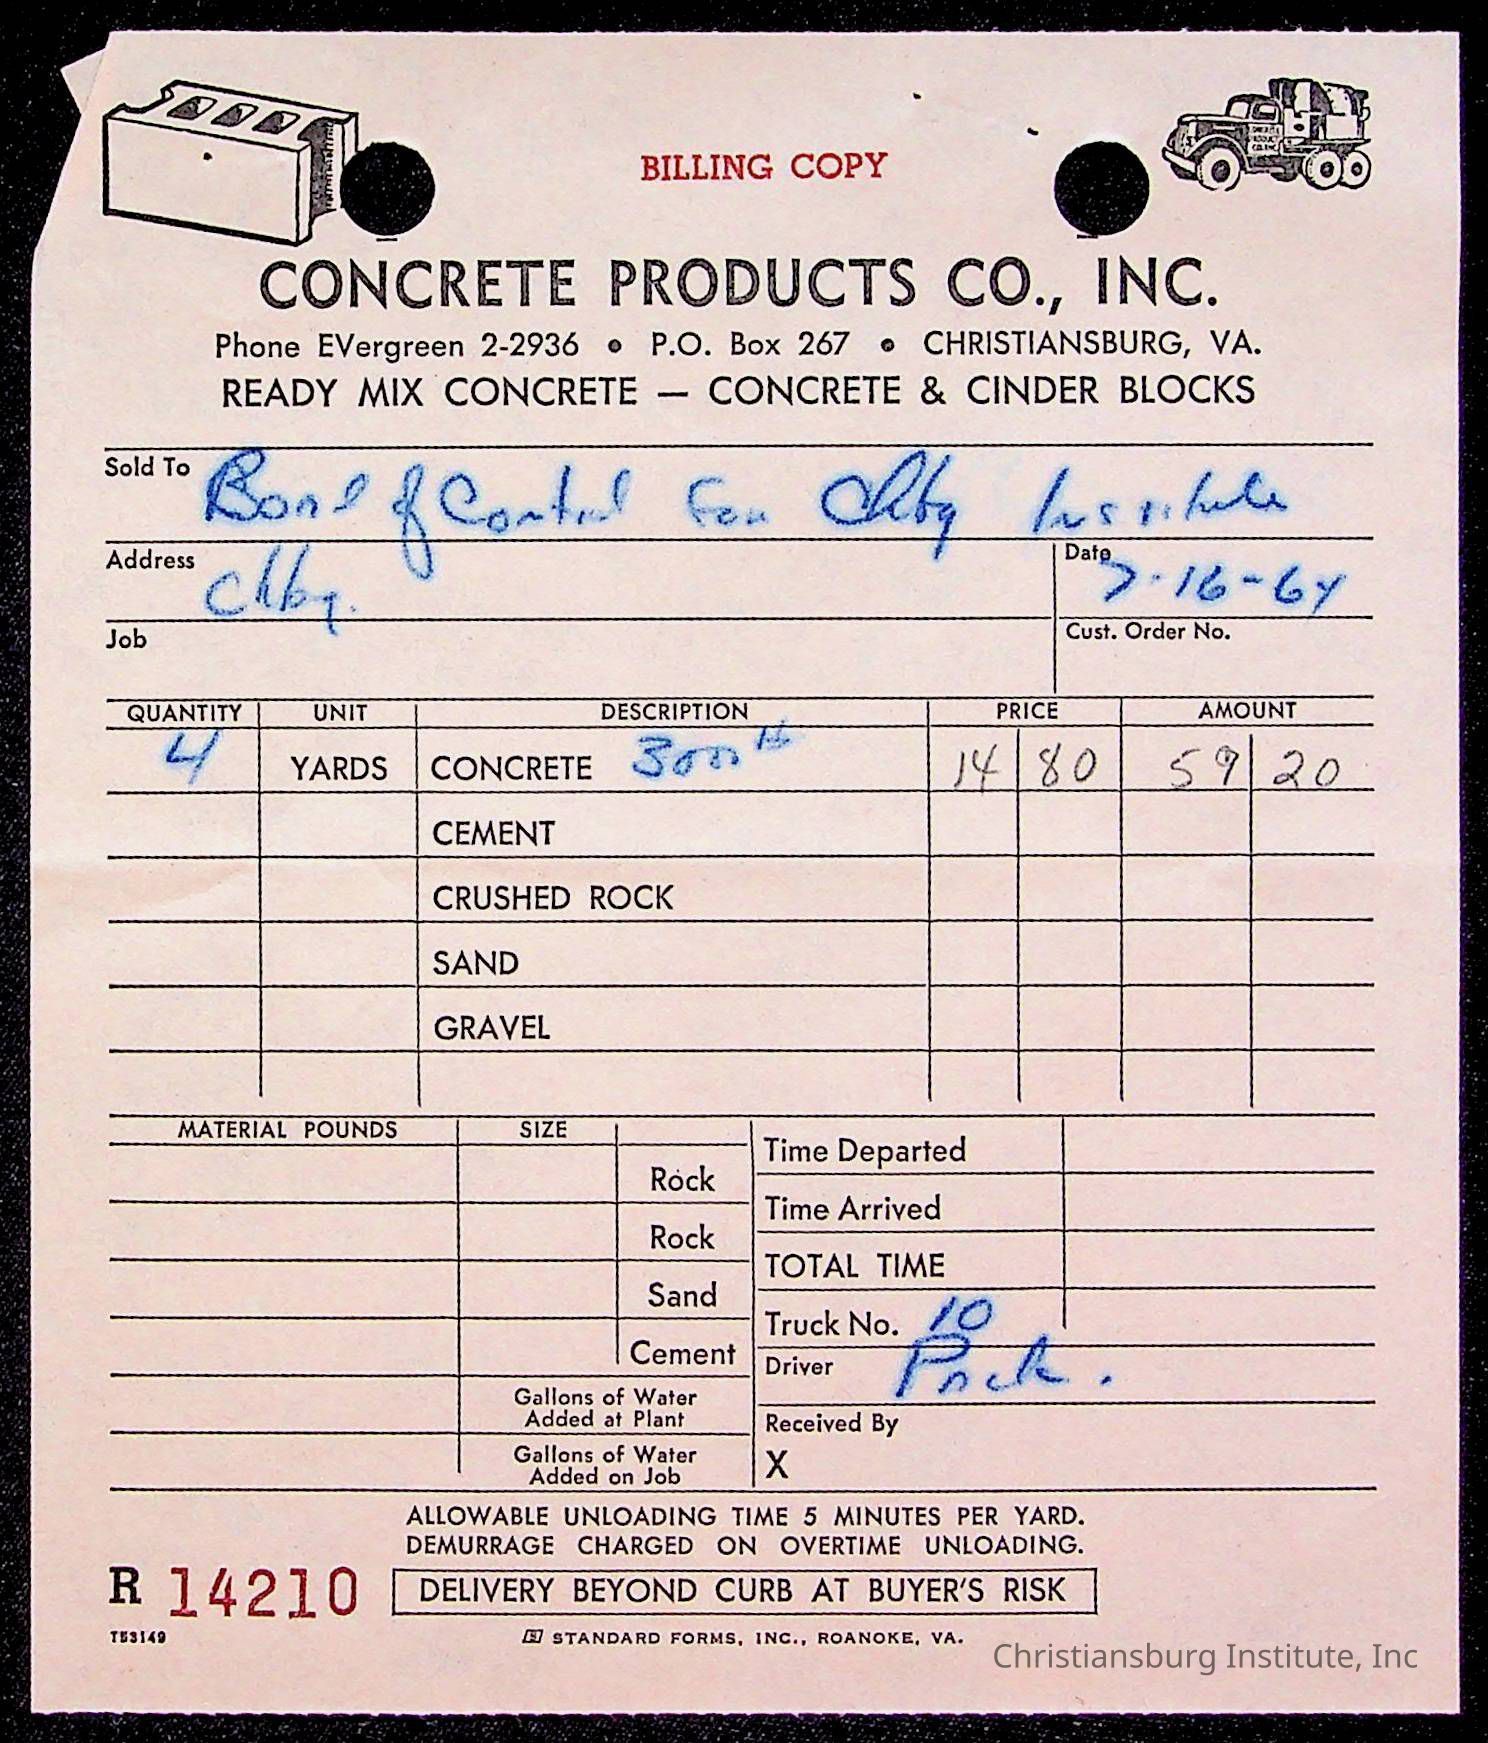 BILLING COPY
CONCRETE PRODUCTS CO., INC.
Phone EVergreen 2-2936 • P.O. Box 267 • CHRISTIANSBURG, VA.
READY MIX CONCRETE — CONCRETE & CINDER BLOCKS
Sold To Board of Control For Chbg Institute
Address Chbg.
Date 7-16-64
Job
Cust. Order No.
QUANTITY UNIT DESCRIPTION PRICE AMOUNT
4 YARDS CONCRETE 3000# 14 80 59 20
CEMENT
CRUSHED ROCK
SAND
GRAVEL
MATERIAL POUNDS SIZE
Rock
Rock
Sand
Cement
Gallons of Water
Added at Plant
Gallons of Water
Added on Job
Time Departed
Time Arrived
TOTAL TIME
Truck No. 10
Driver
Received By
X
ALLOWABLE UNLOADING TIME 5 MINUTES PER YARD.
DEMURRAGE CHARGED ON OVERTIME UNLOADING.
R 14210 DELIVERY BEYOND CURB AT BUYER'S RISK
T53149 STANDARD FORMS, INC., ROANOKE, VA.
Christiansburg Institute, Inc